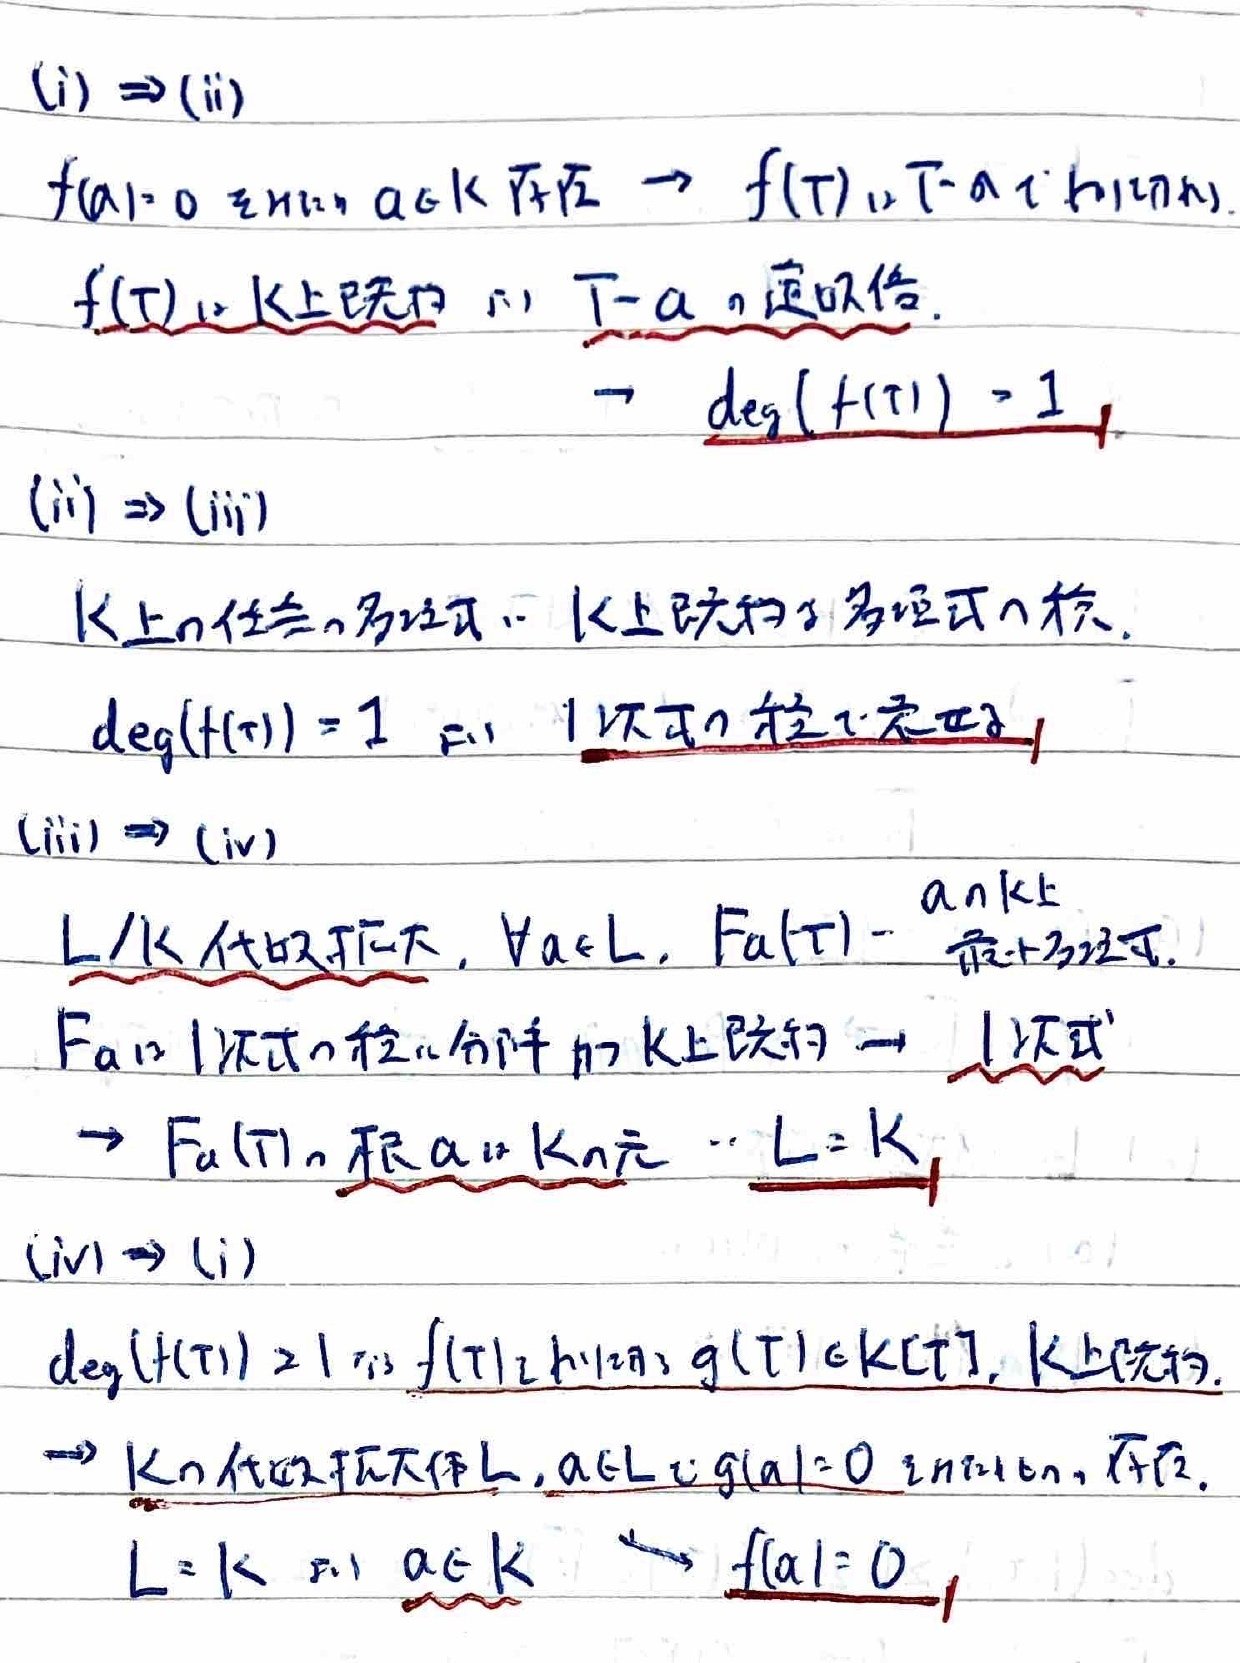 (i) ⇒ (ii)
f(a)=0 をみたす a∈K 存在 → f(T) は T-a でわり切れる.
f(T) は K上既約 より T-a の定数倍.
→ deg(f(T)) = 1
(ii) ⇒ (iii)
K上の任意の多項式は K上既約な多項式の積.
deg(f(T)) = 1 より 1次式の積で表せる
(iii) ⇒ (iv)
L/K 代数拡大, ∀a∈L, Fa(T) - aのK上最小多項式.
Faは1次式の積に分解 かつ K上既約 → 1次式
→ Fa(T)の根aはKの元 ∴ L=K
(iv) ⇒ (i)
deg(f(T)) ≥ 1 なら f(T)をわり切る g(T)∈K[T], K上既約.
→ Kの代数拡大体L, a∈Lで g(a)=0 をみたすもの 存在.
L=K より a∈K → f(a)=0